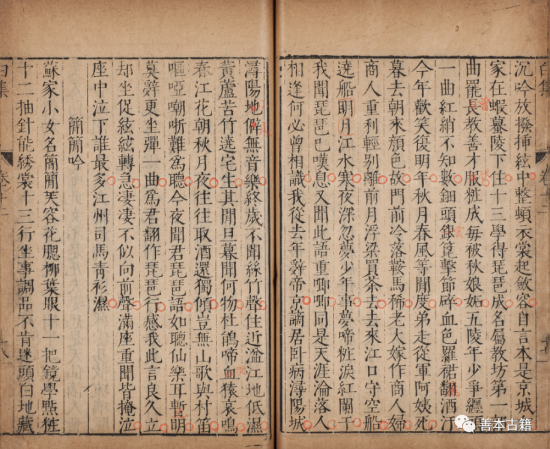 沉吟放撥揷絃中整頓衣裳起斂容自言本是京城女
家在蝦蟇陵下住十三學得琵琶成名屬教坊第一部
曲罷長教善才服粧成每被秋娘妬五陵年少爭纏頭
一曲紅綃不知數鈿頭銀篦擊節碎血色羅裙翻酒汙
今年歡笑復明年秋月春風等閑度弟走從軍阿姨死
暮去朝來顏色故門前冷落鞍馬稀老大嫁作商人婦
商人重利輕別離前月浮梁買茶去去來江口守空船
遶船明月江水寒夜深忽夢少年事夢啼粧淚紅闌干
我聞琵琶已嘆息又聞此語重唧唧同是天涯淪落人
相逢何必曾相識我從去年辭帝京謫居臥病潯陽城
潯陽地僻無音樂終歲不聞絲竹聲住近湓江地低濕
黃蘆苦竹遶宅生其間旦暮聞何物杜鵑啼血猿哀鳴
春江花朝秋月夜往往取酒還獨傾豈無山歌與村笛
嘔啞嘲哳難爲聽今夜聞君琵琶語如聽仙樂耳暫明
莫辭更坐彈一曲爲君翻作琵琶行感我此言良久立
却坐促絃絃轉急凄凄不似向前聲滿座重聞皆掩泣
座中泣下誰最多江州司馬青衫濕
簡簡吟
蘇家小女名簡簡芙蓉花腮柳葉眼十一把鏡學點粧
十二抽針能綉裳十三行坐事調品不肯迷頭白地藏
白集
卷十二
善本古籍